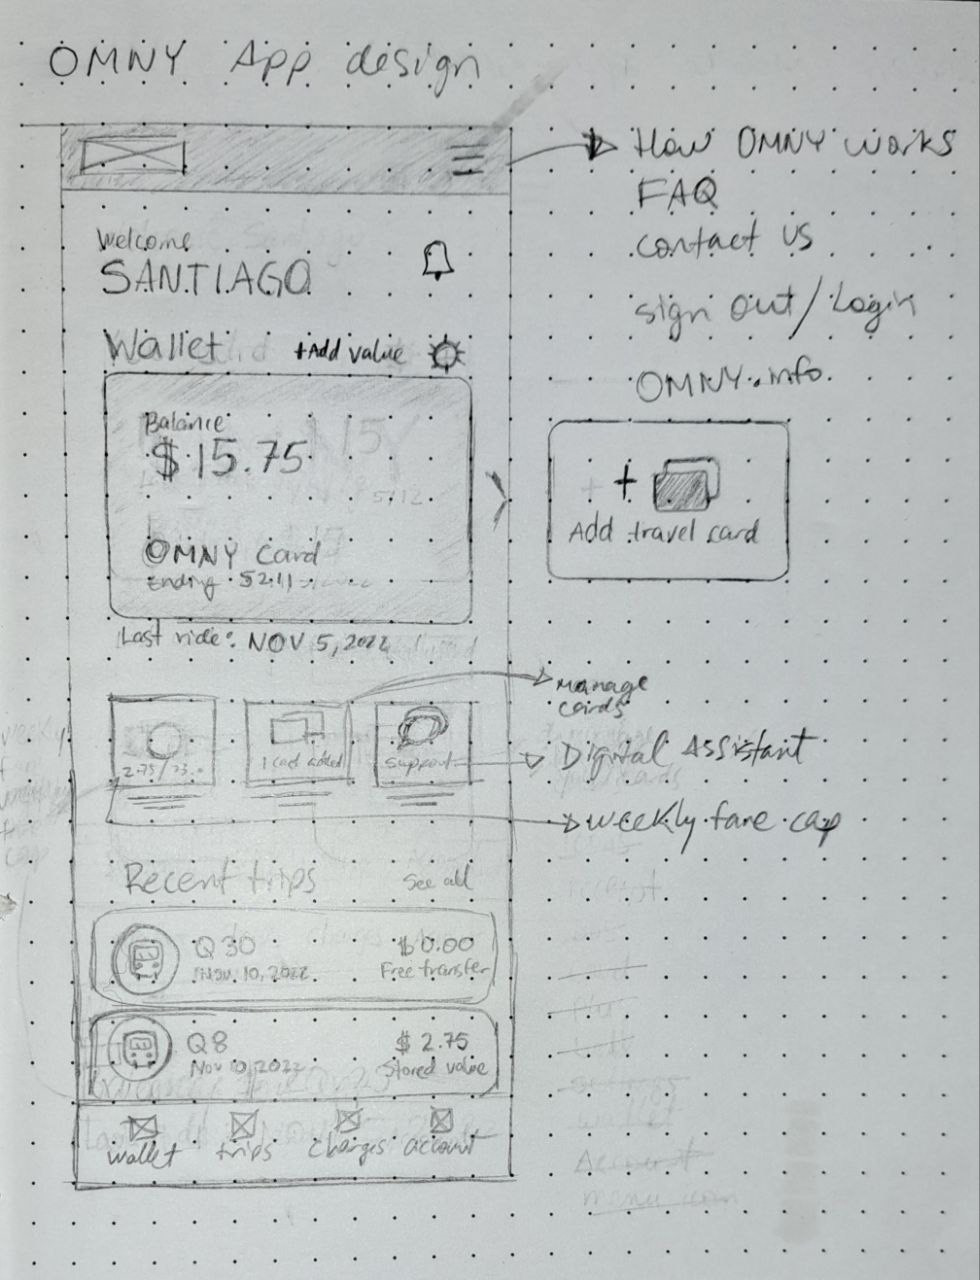 OMNY App design
How OMNY works
FAQ
contact us
sign out/Login
OMNY.info
Welcome
SANTIAGO
Wallet +Add value
Balance
$15.75
OMNY Card
Ending 5211
Last ride: NOV 5, 2022
+
Add travel card
1 card added
support
manage cards
Digital Assistant
weekly fare cap
Recent trips See all
Q30 $0.00
Nov. 10, 2022 Free transfer
Q8 $2.75
Nov 10, 2022 Stored value
wallet trips charges account
wallet
Account
menu icon